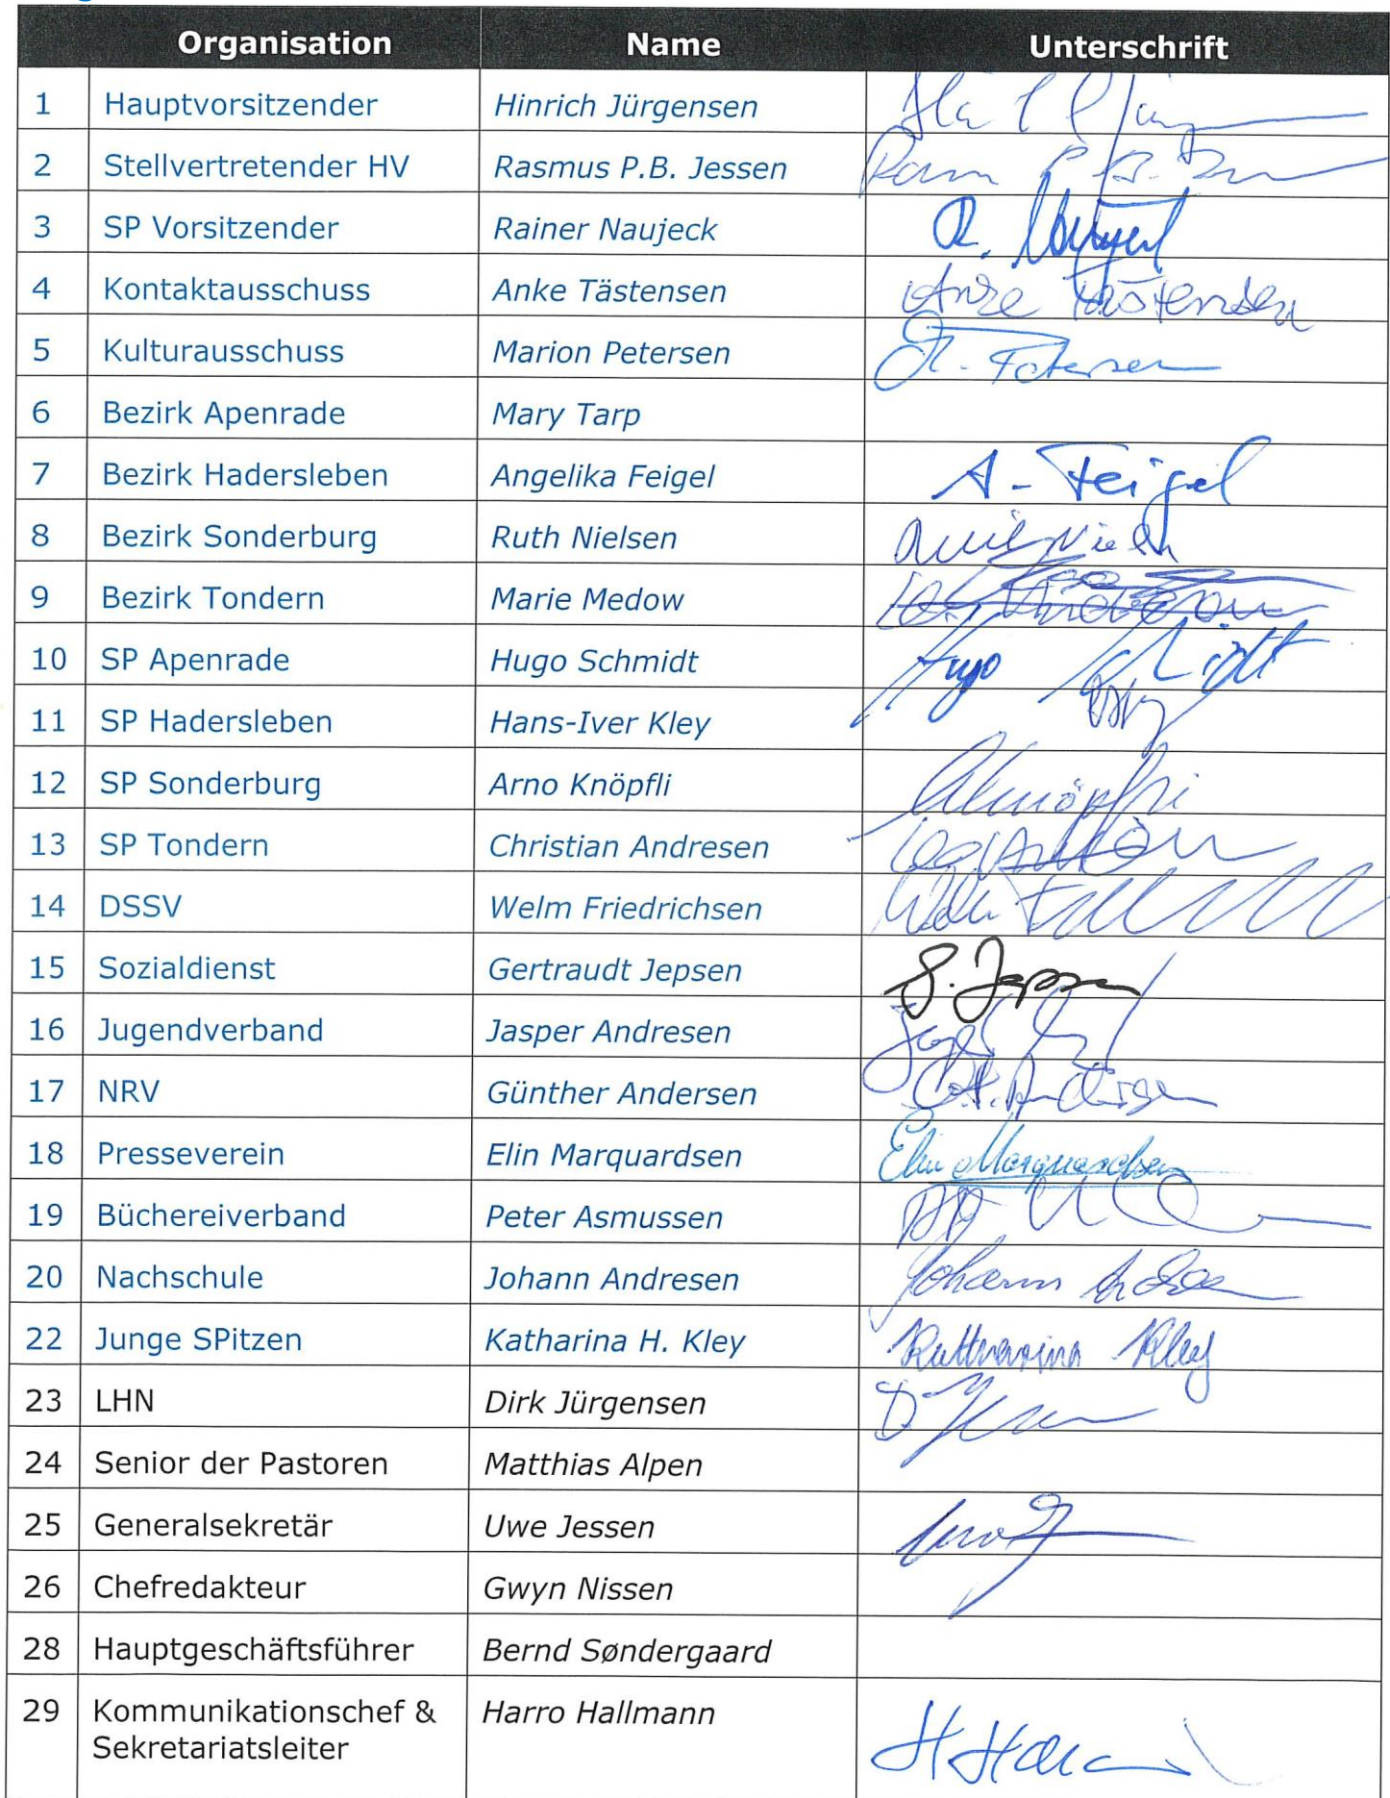 Organisation Name Unterschrift
1 Hauptvorsitzender Hinrich Jürgensen
2 Stellvertretender HV Rasmus P.B. Jessen
3 SP Vorsitzender Rainer Naujeck R.
4 Kontaktausschuss Anke Tästensen Anke Tästensen
5 Kulturausschuss Marion Petersen
6 Bezirk Apenrade Mary Tarp
7 Bezirk Hadersleben Angelika Feigel A. Feigel
8 Bezirk Sonderburg Ruth Nielsen
9 Bezirk Tondern Marie Medow
10 SP Apenrade Hugo Schmidt Hugo Schmidt
11 SP Hadersleben Hans-Iver Kley
12 SP Sonderburg Arno Knöpfli AKnöpfli
13 SP Tondern Christian Andresen
14 DSSV Welm Friedrichsen
15 Sozialdienst Gertraudt Jepsen G. Jepsen
16 Jugendverband Jasper Andresen
17 NRV Günther Andersen
18 Presseverein Elin Marquardsen Elin Marquardsen
19 Büchereiverband Peter Asmussen
20 Nachschule Johann Andresen Johann
22 Junge SPitzen Katharina H. Kley Katharina Kley
23 LHN Dirk Jürgensen
24 Senior der Pastoren Matthias Alpen
25 Generalsekretär Uwe Jessen
26 Chefredakteur Gwyn Nissen
28 Hauptgeschäftsführer Bernd Søndergaard
29 Kommunikationschef & Harro Hallmann
Sekretariatsleiter